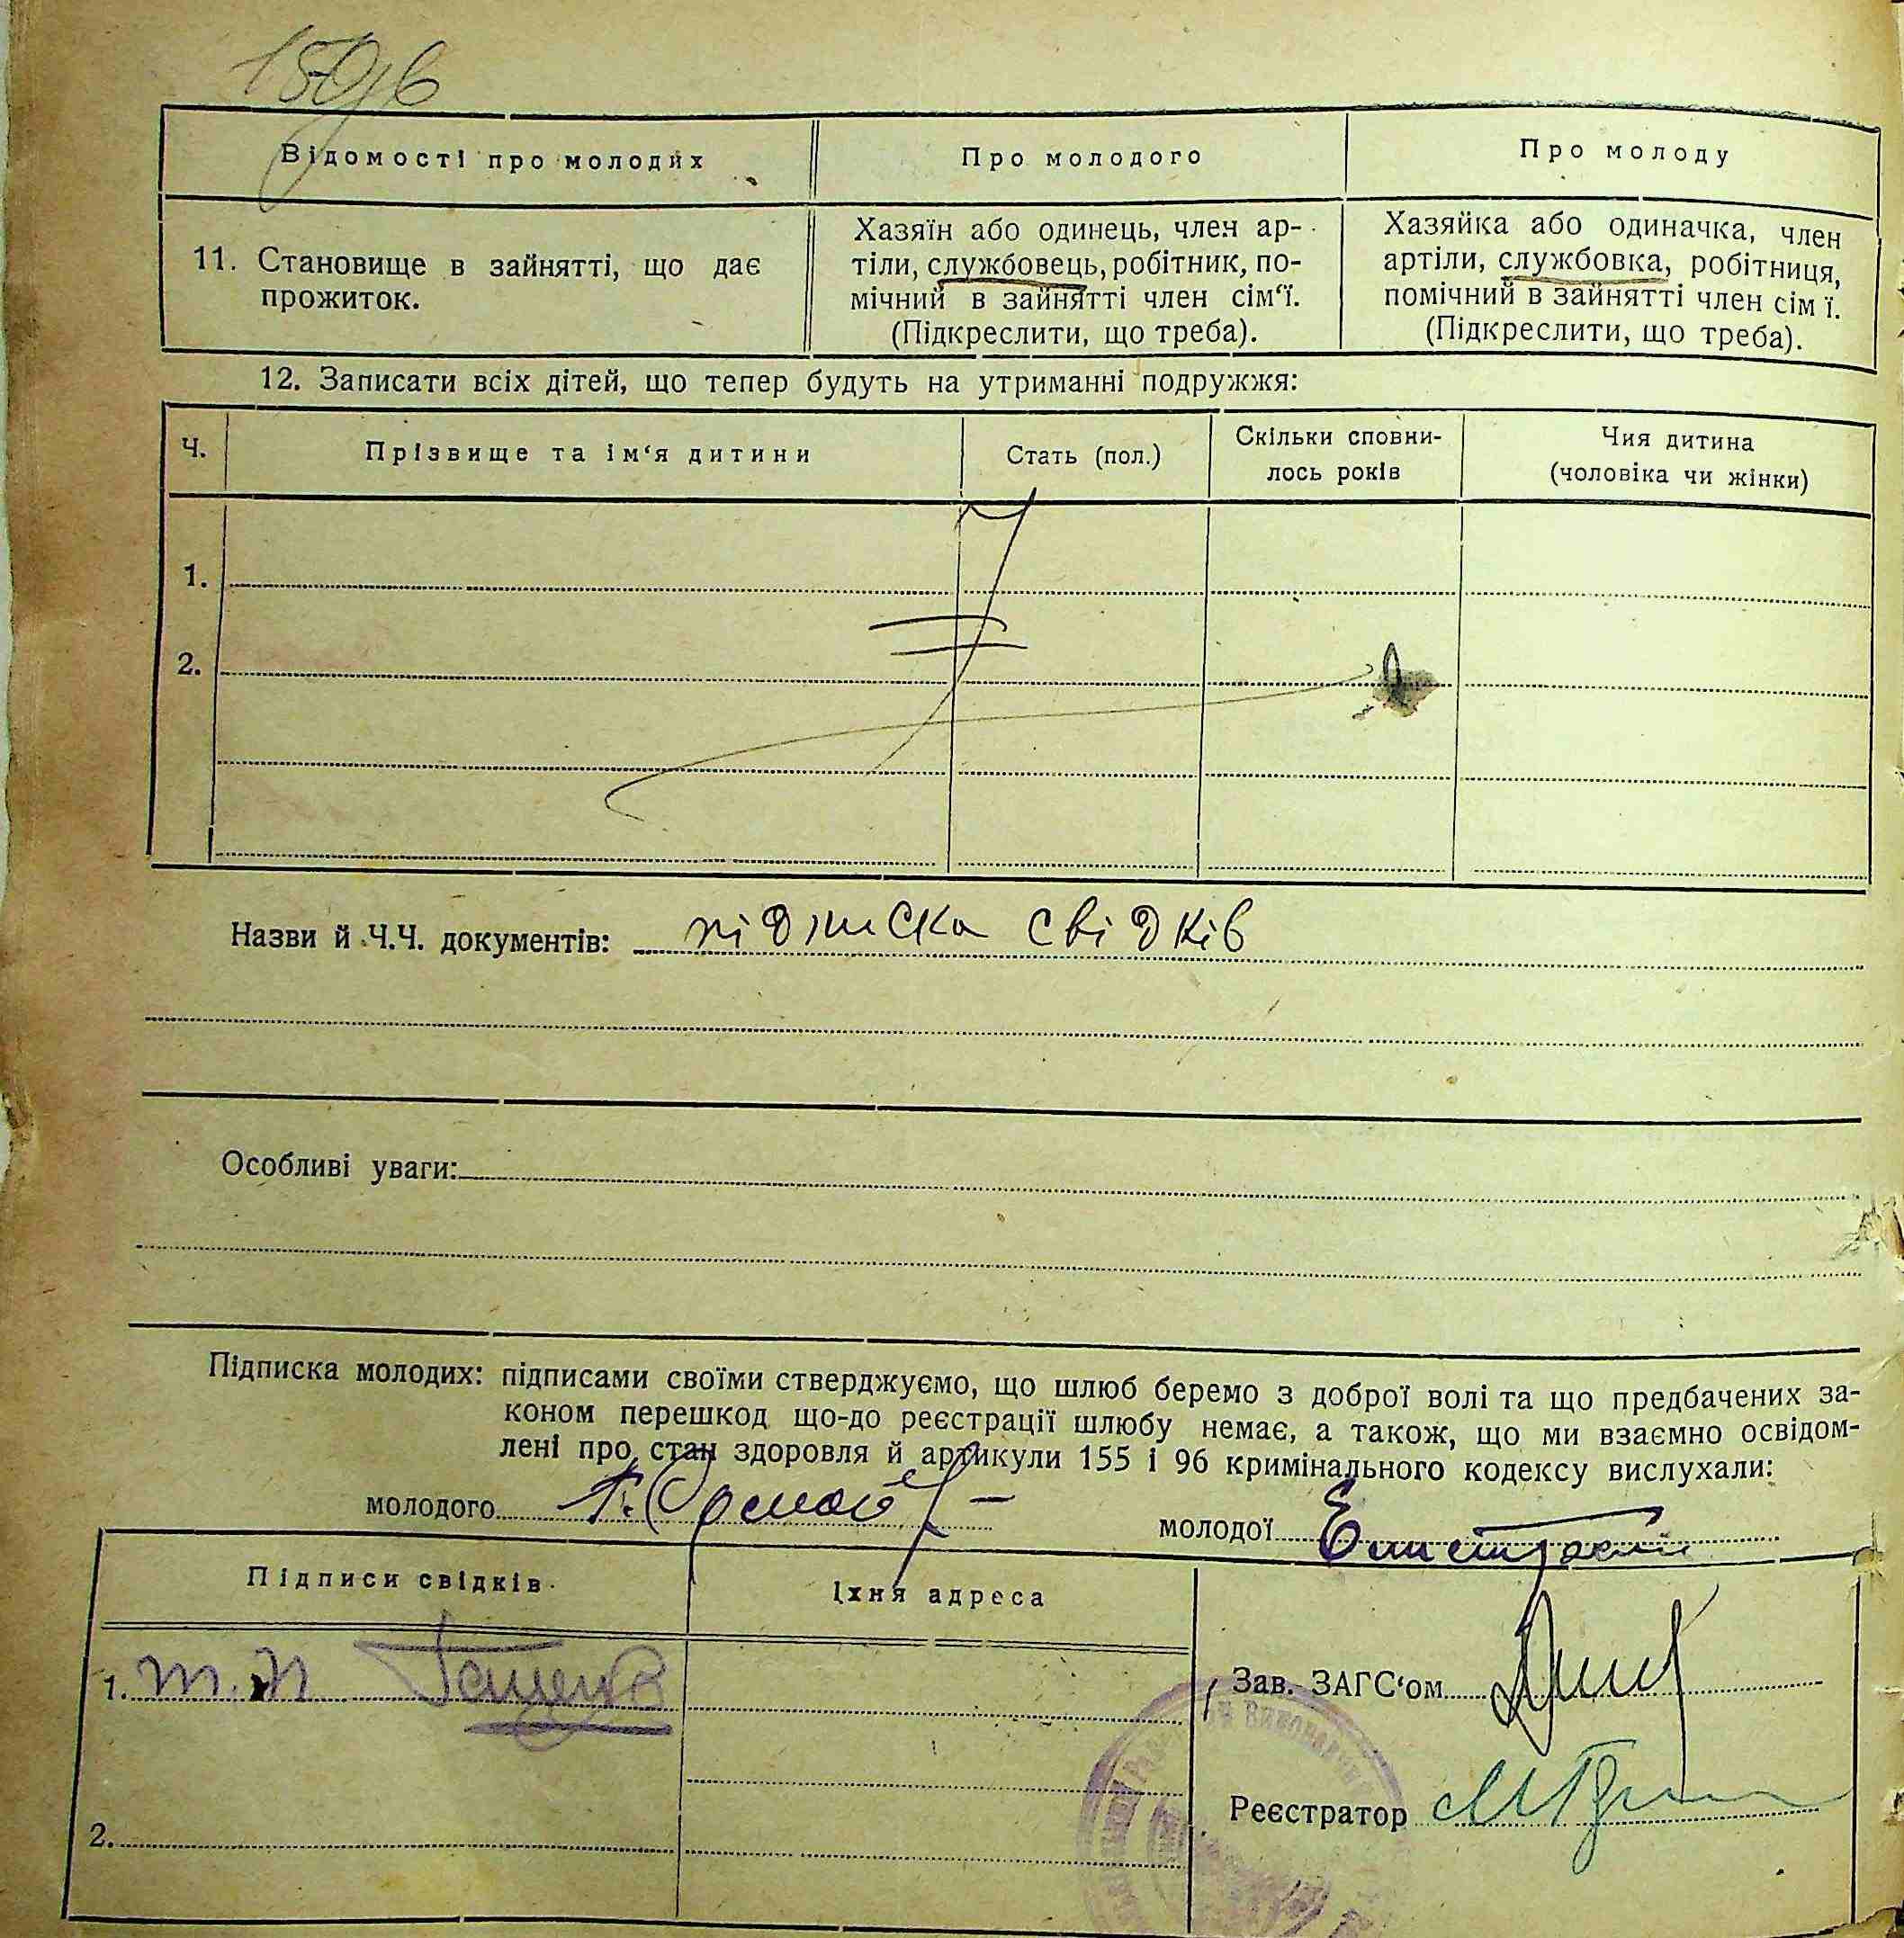 Відомості про молодих
Про молодого
Про молоду
11. Становище в зайнятті, що дає
прожиток.
Хазяїн або одинець, член ар-
тіли, службовець, робітник, по-
мічний в зайнятті член сім‘ї.
(Підкреслити, що треба).
Хазяйка або одиначка, член
артіли, службовка, робітниця,
помічний в зайнятті член сім ї.
(Підкреслити, що треба).
12. Записати всіх дітей, що тепер будуть на утриманні подружжя:
Ч.
Прізвище та ім‘я дитини
Стать (пол.)
Скільки сповни-
лось років
Чия дитина
(чоловіка чи жінки)
1.
2.
Назви й Ч.Ч. документів: підписка свідків
Особливі уваги:
Підписка молодих: підписами своїми стверджуємо, що шлюб беремо з доброї волі та що предбачених за-
коном перешкод що-до реєстрації шлюбу немає, а також, що ми взаємно освідом-
лені про стан здоровля й артикули 155 і 96 кримінального кодексу вислухали:
молодого
молодої
Підписи свідків.
Їхня адреса
1.
2.
Зав. ЗАГС‘ом
Реєстратор